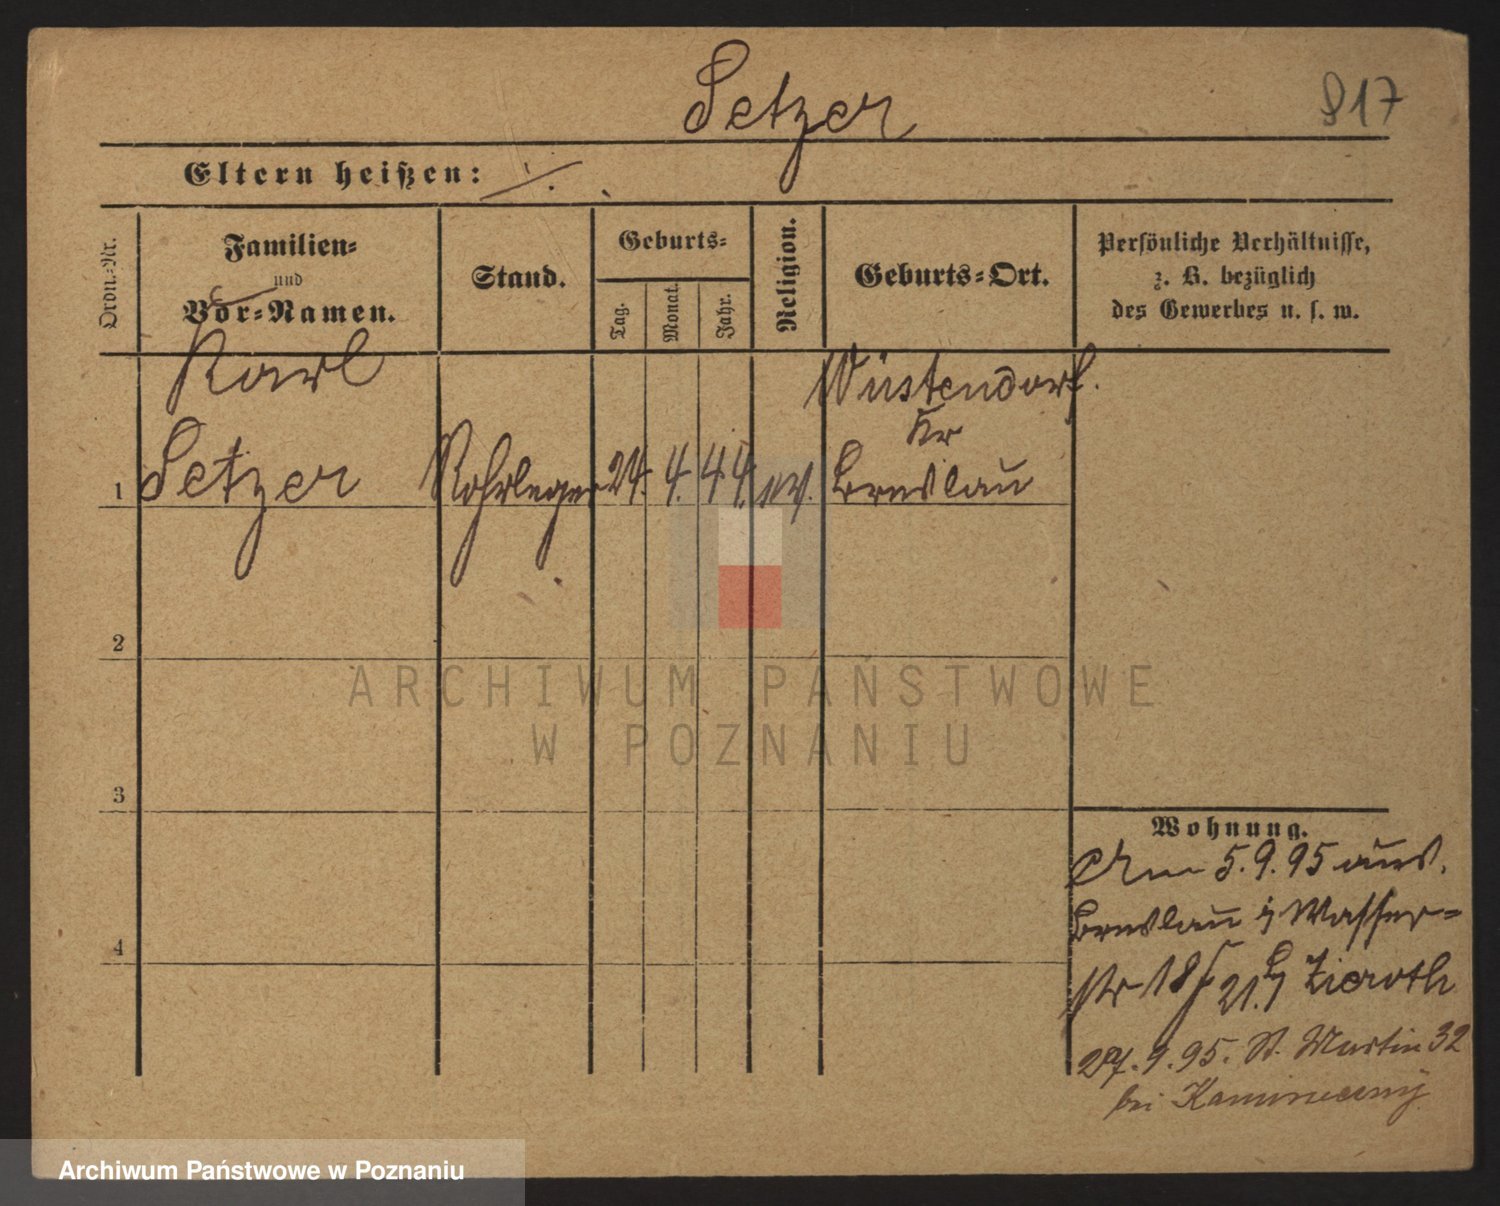 817
Setzer
Eltern heißen: ·/.
Ordn.-Nr.
Familien-
und
Vor-Namen.
Stand.
Geburts-
Tag.
Monat.
Jahr.
Religion.
Geburts-Ort.
Persönliche Verhältnisse,
z. B. bezüglich
des Gewerbes u. s. w.
Karl
Wüstendorf.
Kr
1 Setzer Rohrleger 24. 4. 44. ev. Breslau
2
3
4
Wohnung.
Am 5.9.95 aus.
Breslau Wasser-
str 18/ 21. Zieroth
27.9.95. St. Martin 32
bei
ARCHIWUM PAŃSTWOWE
W POZNANIU
Archiwum Państwowe w Poznaniu